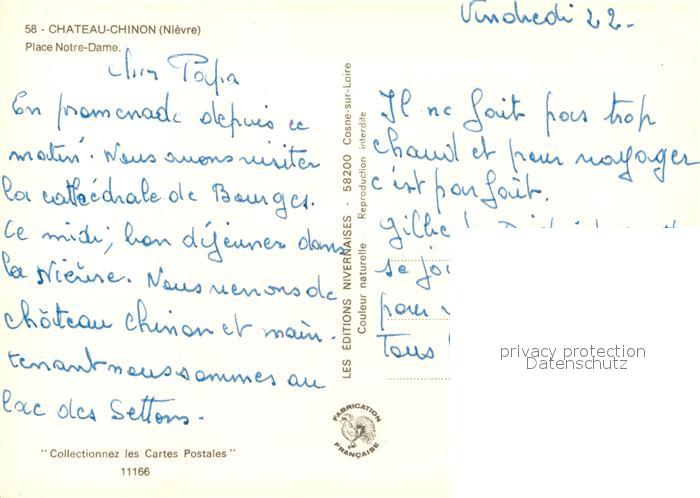 58 - CHATEAU-CHINON (Nièvre)
Place Notre-Dame.
Vendredi 22-
Cher Papa
En promenade depuis ce
matin. Nous avons visiter
la cathédrale de Bourges.
Ce midi, bon déjeuner dans
la Nièvre. Nous venons de
château Chinon et main-
tenant nous sommes au
lac des Settons.
Il ne fait pas trop
chaud et pour voyager
c'est parfait.
se
pour
Tous
LES ÉDITIONS NIVERNAISES - 58200 Cosne-sur-Loire
Couleur naturelle - Reproduction interdite
FABRICATION
FRANÇAISE
"Collectionnez les Cartes Postales"
11166
privacy protection
Datenschutz